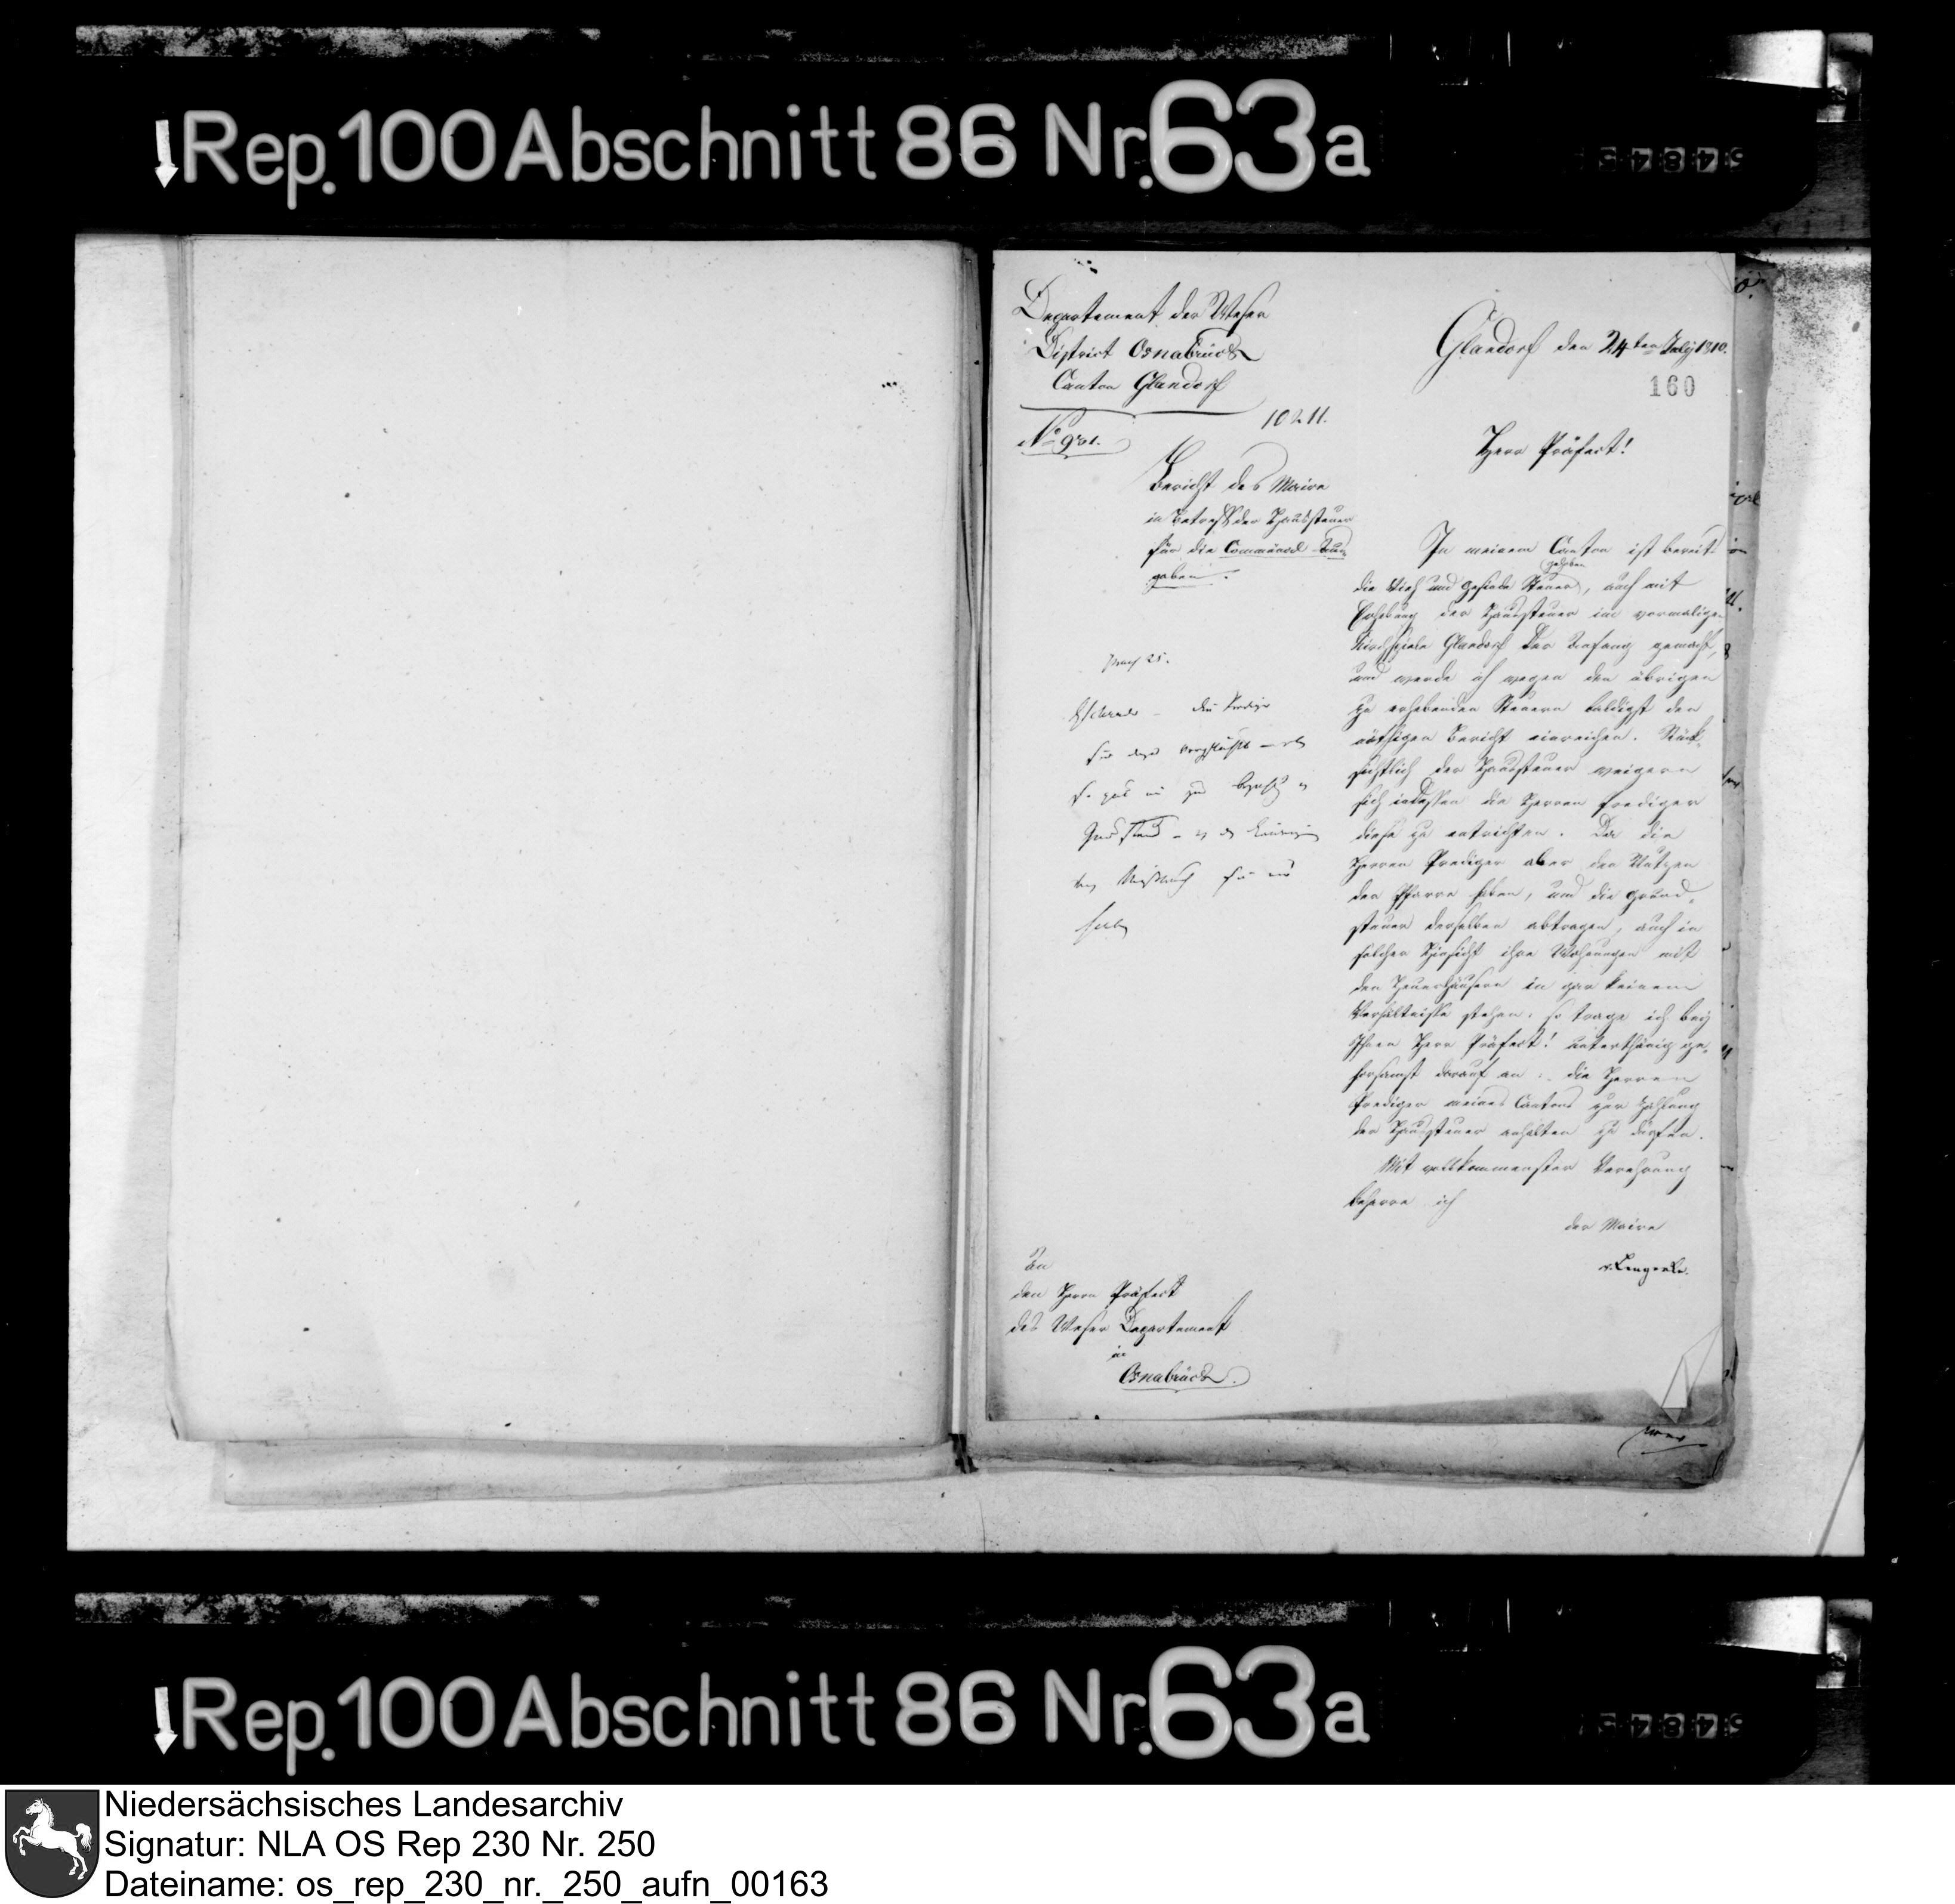 Rep. 100 Abschnitt 86 Nr. 63a
54845
Departement der Weser
District Osnabrück
Canton Glandorf
No 931.
10211.
Glandorf den 24ten July 1810.
160
Herr Präfect!
Bericht des Maire
in Betreff der Haussteuer
für die Communal-Aus-
gaben.
In meinem Canton ist bereits
die Vieh und Gesinde Steuer gehoben, auch mit
Erhebung der Haussteuer im vormaligen
Kirchspiele Glandorf der Anfang gemacht,
und werde ich wegen den übrigen
zu erhebenden Steuern baldigst den
nöthigen Bericht einreichen. Rück-
sichtlich der Haussteuer weigern
sich indessen die Herren Prediger
diese zu entrichten. Da die
Herren Prediger aber den Nutzen
der Pfarre haben, und die Grund-
steuer derselben abtragen, auch in
solcher Hinsicht ihre Wohnungen mit
den Heuerhäusern in gar keinem
Verhältnisse stehen, so trage ich bey
Ihnen Herr Präfect! unterthänig ge-
horsamst darauf an: die Herren
Prediger meines Cantons zur Zahlung
der Haussteuer anhalten zu dürfen.
Mit vollkommenster Verehrung
beharre ich
der Maire
v. Lengerke.
An
den Herrn Präfect
des Weser Departement
in
Osnabrück.
Rep. 100 Abschnitt 86 Nr. 63a
54845
Niedersächsisches Landesarchiv
Signatur: NLA OS Rep 230 Nr. 250
Dateiname: os_rep_230_nr._250_aufn_00163